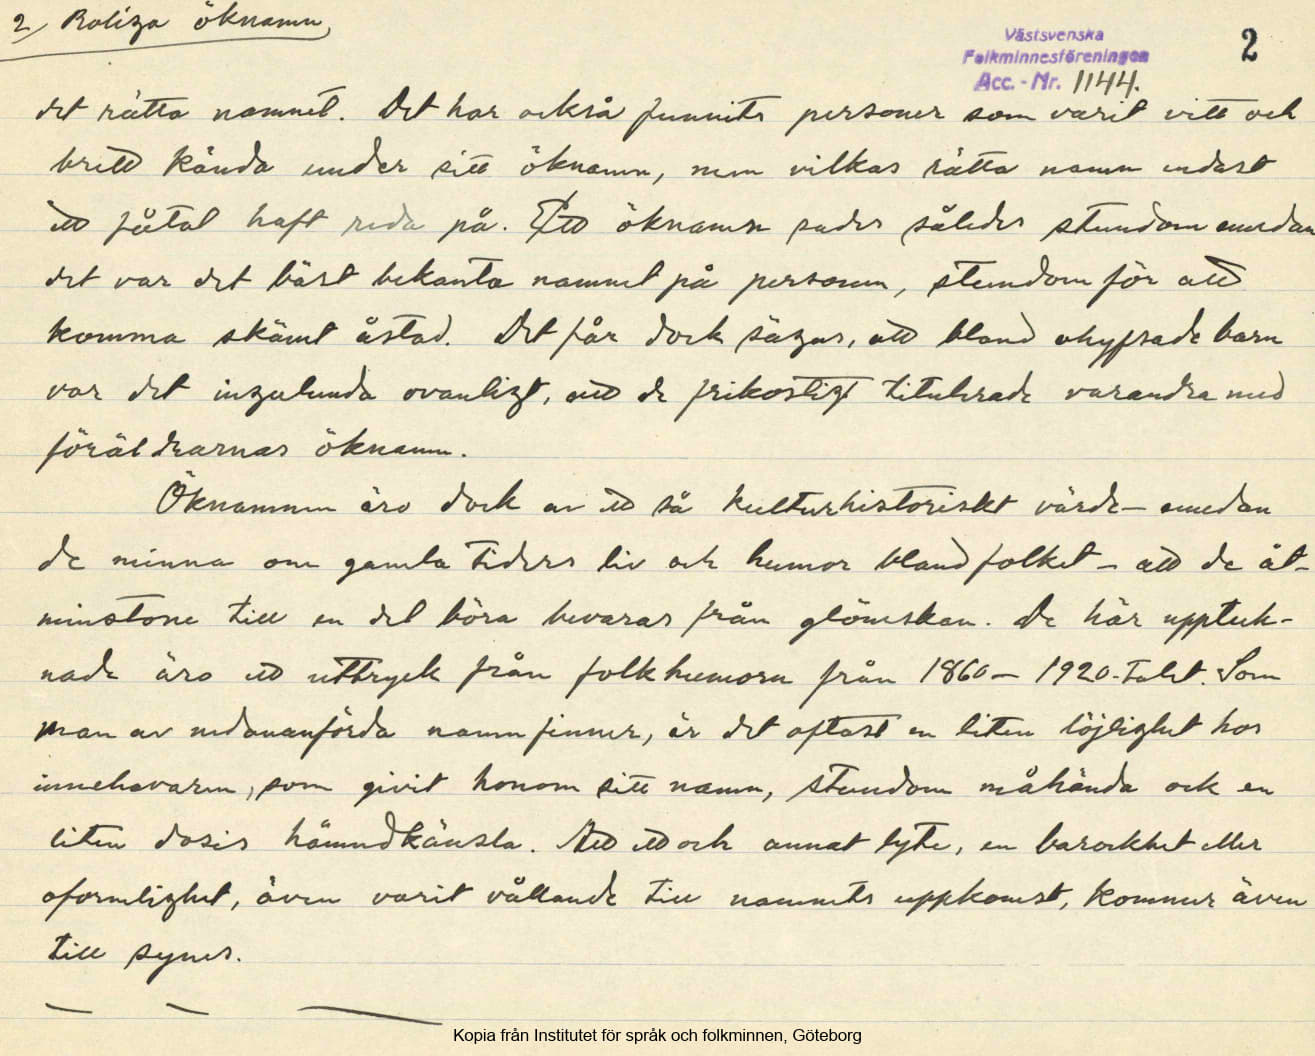 2/ Roliga öknamn
Västsvenska
Folkminnesföreningen
Acc. - Nr. 1144.
2
det rätta namnet. Det har också funnits personer som varit vitt och
brett kända under sitt öknamn, men vilkas rätta namn endast
ett fåtal haft reda på. Ett öknamn sades således stundom emedan
det var det bäst bekanta namnet på personen, stundom för att
komma skämt åstad. Det får dock sägas, att bland ohyfsade barn
var det ingalunda ovanligt, att de frikostigt titulerade varandra med
föräldrarnas öknamn.
Öknamnen äro dock av ett så kulturhistoriskt värde – emedan
de minna om gamla tiders liv och humor bland folket – att de åt-
minstone till en del böra bevaras från glömskan. De här uppteck-
nade äro ett uttryck från folkhumorn från 1860 – 1920-talet. Som
man av nedananförda namn finner, är det oftast en liten löjlighet hos
innehavaren, som givit honom sitt namn, stundom måhända ock en
liten dosis hämndkänsla. Att ett och annat lyte, en barockhet eller
oformlighet, även varit vållande till namnets uppkomst, kommer även
till synes.
Kopia från Institutet för språk och folkminnen, Göteborg